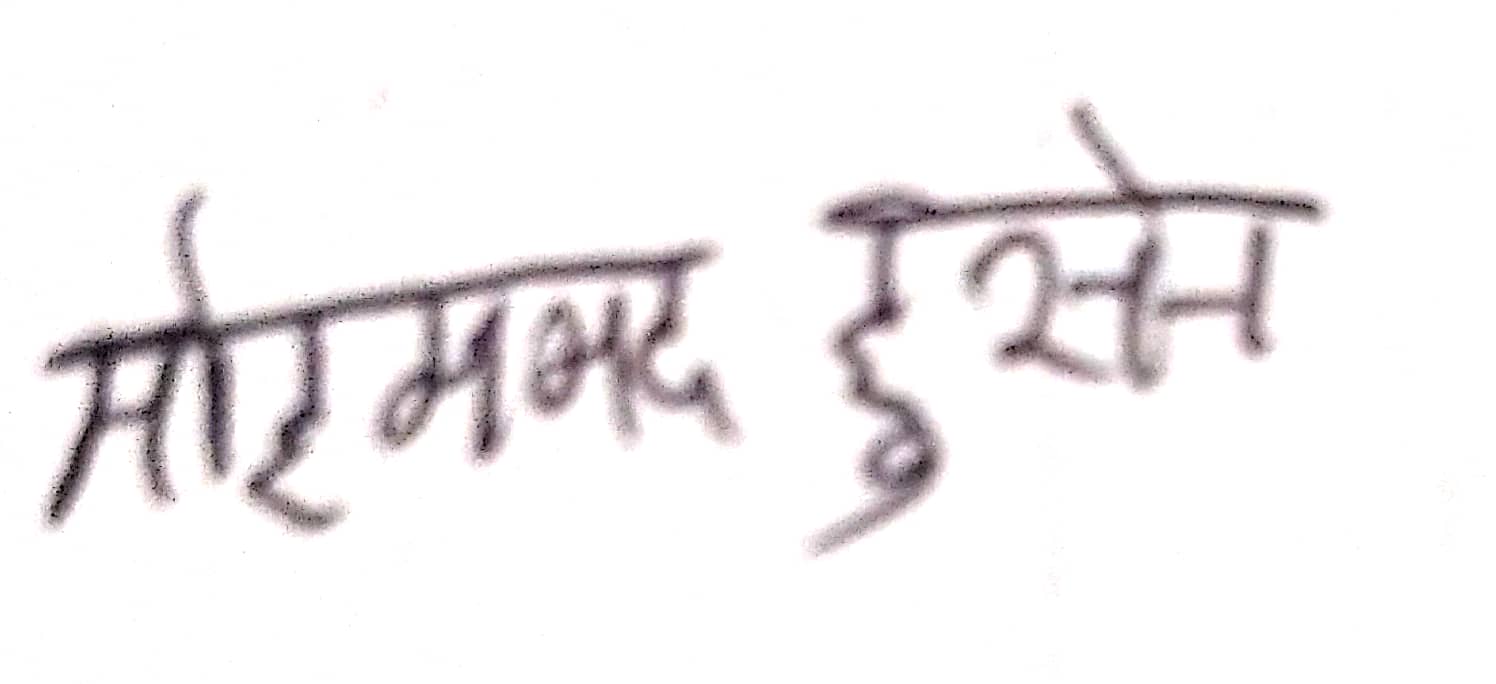 मोहमम्मद हुसेन